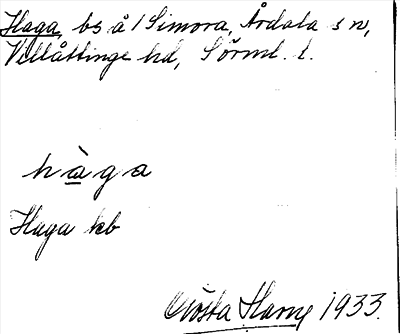 Haga, bs å 1 Simora, Årdala sn,
Villåttinge hd, Sörml. l.
hàga
Haga kb
Gösta Harne 1933.